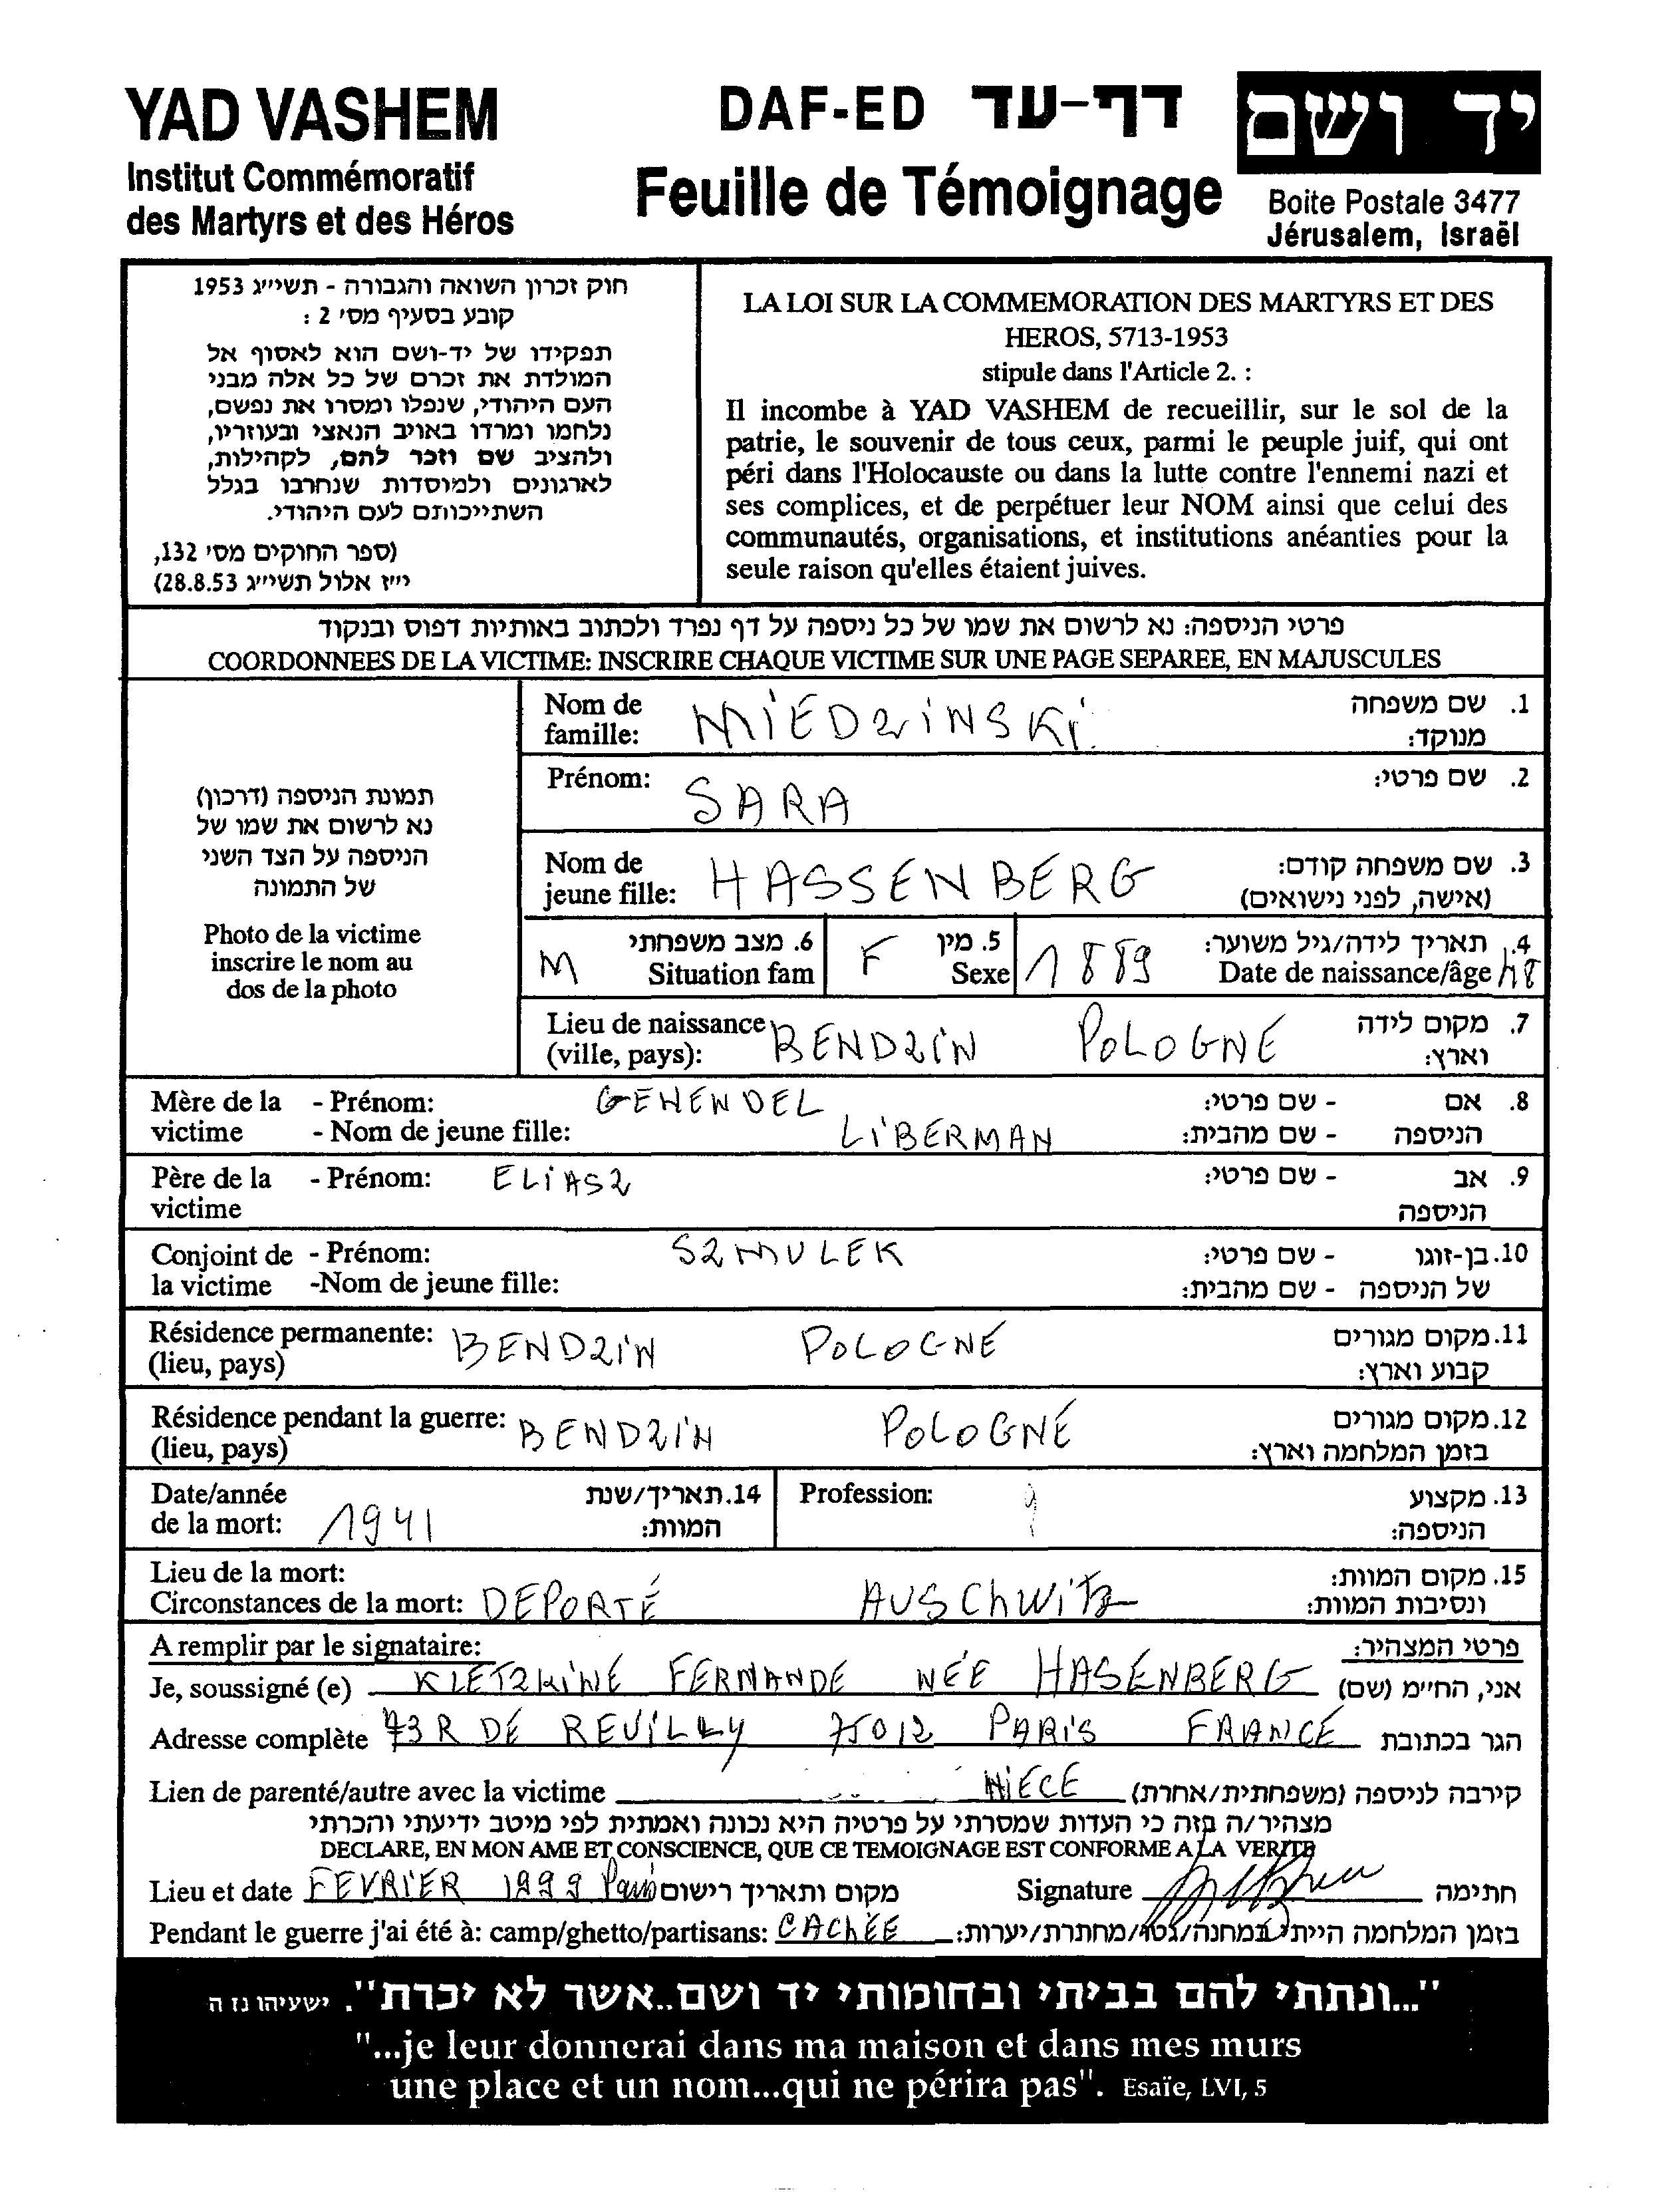 YAD VASHEM
Institut Commémoratif
des Martyrs et des Héros
DAF-ED דף-עד
Feuille de Témoignage
יד ושם
Boite Postale 3477
Jérusalem, Israël
חוק זכרון השואה והגבורה - תשי״ג 1953
קובע בסעיף מס׳ 2 :
תפקידו של יד-ושם הוא לאסוף אל
המולדת את זכרם של כל אלה מבני
העם היהודי, שנפלו ומסרו את נפשם,
נלחמו ומרדו באויב הנאצי ובעוזריו,
ולהציב שם וזכר להם, לקהילות,
לארגונים ולמוסדות שנחרבו בגלל
השתייכותם לעם היהודי.
(ספר החוקים מס׳ 132,
י״ז אלול תשי״ג 28.8.53)
LA LOI SUR LA COMMEMORATION DES MARTYRS ET DES
HEROS, 5713-1953
stipule dans l'Article 2. :
Il incombe à YAD VASHEM de recueillir, sur le sol de la
patrie, le souvenir de tous ceux, parmi le peuple juif, qui ont
péri dans l'Holocauste ou dans la lutte contre l'ennemi nazi et
ses complices, et de perpétuer leur NOM ainsi que celui des
communautés, organisations, et institutions anéanties pour la
seule raison qu'elles étaient juives.
פרטי הניספה: נא לרשום את שמו של כל ניספה על דף נפרד ולכתוב באותיות דפוס ובנקוד
COORDONNEES DE LA VICTIME: INSCRIRE CHAQUE VICTIME SUR UNE PAGE SEPAREE, EN MAJUSCULES
תמונת הניספה (דרכון)
נא לרשום את שמו של
הניספה על הצד השני
של התמונה
Photo de la victime
inscrire le nom au
dos de la photo
Nom de famille: MIEDZINSKI 1. שם משפחה מנוקד:
Prénom: SARA 2. שם פרטי:
Nom de jeune fille: HASSENBERG 3. שם משפחה קודם: (אישה, לפני נישואים)
M 6. מצב משפחתי Situation fam F 5. מין Sexe 1889 4. תאריך לידה/גיל משוער: Date de naissance/âge
Lieu de naissance (ville, pays): BENDZIN POLOGNE 7. מקום לידה וארץ:
Mère de la - Prénom: GEHENDEL - שם פרטי: 8. אם
victime - Nom de jeune fille: LIBERMAN - שם מהבית: הניספה
Père de la - Prénom: ELIASZ - שם פרטי: 9. אב
victime הניספה
Conjoint de - Prénom: SZMULEK - שם פרטי: 10. בן-זוגו
la victime -Nom de jeune fille: - שם מהבית: של הניספה
Résidence permanente: BENDZIN POLOGNE 11. מקום מגורים
(lieu, pays) קבוע וארץ:
Résidence pendant la guerre: BENDZIN POLOGNE 12. מקום מגורים
(lieu, pays) בזמן המלחמה וארץ:
Date/année de la mort: 1941 14. תאריך/שנת המוות: Profession: ? 13. מקצוע הניספה:
Lieu de la mort: 15. מקום המוות:
Circonstances de la mort: DEPORTÉ AUSCHWITZ ונסיבות המוות:
A remplir par le signataire: פרטי המצהיר:
Je, soussigné (e) KLETZKINE FERNANDE NÉE HASENBERG אני, החי״מ (שם)
Adresse complète 73 R DE REUILLY 75012 PARIS FRANCE הגר בכתובת
Lien de parenté/autre avec la victime NIECE קירבה לניספה (משפחתית/אחרת)
מצהיר/ה בזה כי העדות שמסרתי על פרטיה היא נכונה ואמתית לפי מיטב ידיעתי והכרתי
DECLARE, EN MON AME ET CONSCIENCE, QUE CE TEMOIGNAGE EST CONFORME A LA VERITE
Lieu et date FEVRIER 1999 Paris מקום ותאריך רישום Signature חתימה
Pendant le guerre j'ai été à: camp/ghetto/partisans: CACHÉE בזמן המלחמה הייתי במחנה/גטו/מחתרת/יערות:
"...ונתתי להם בביתי ובחומותי יד ושם..אשר לא יכרת". ישעיהו נו ה
"...je leur donnerai dans ma maison et dans mes murs
une place et un nom...qui ne périra pas". Esaïe, LVI, 5